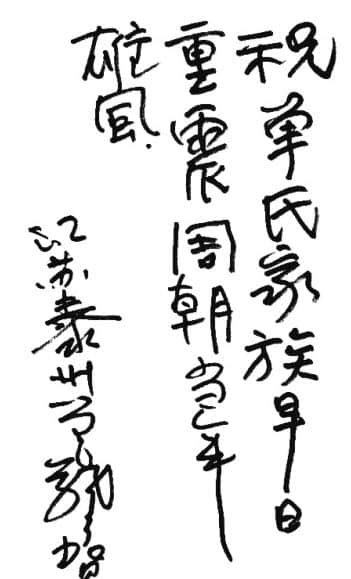 祝单氏家族早日
重震周朝当年
雄风.
江苏泰州